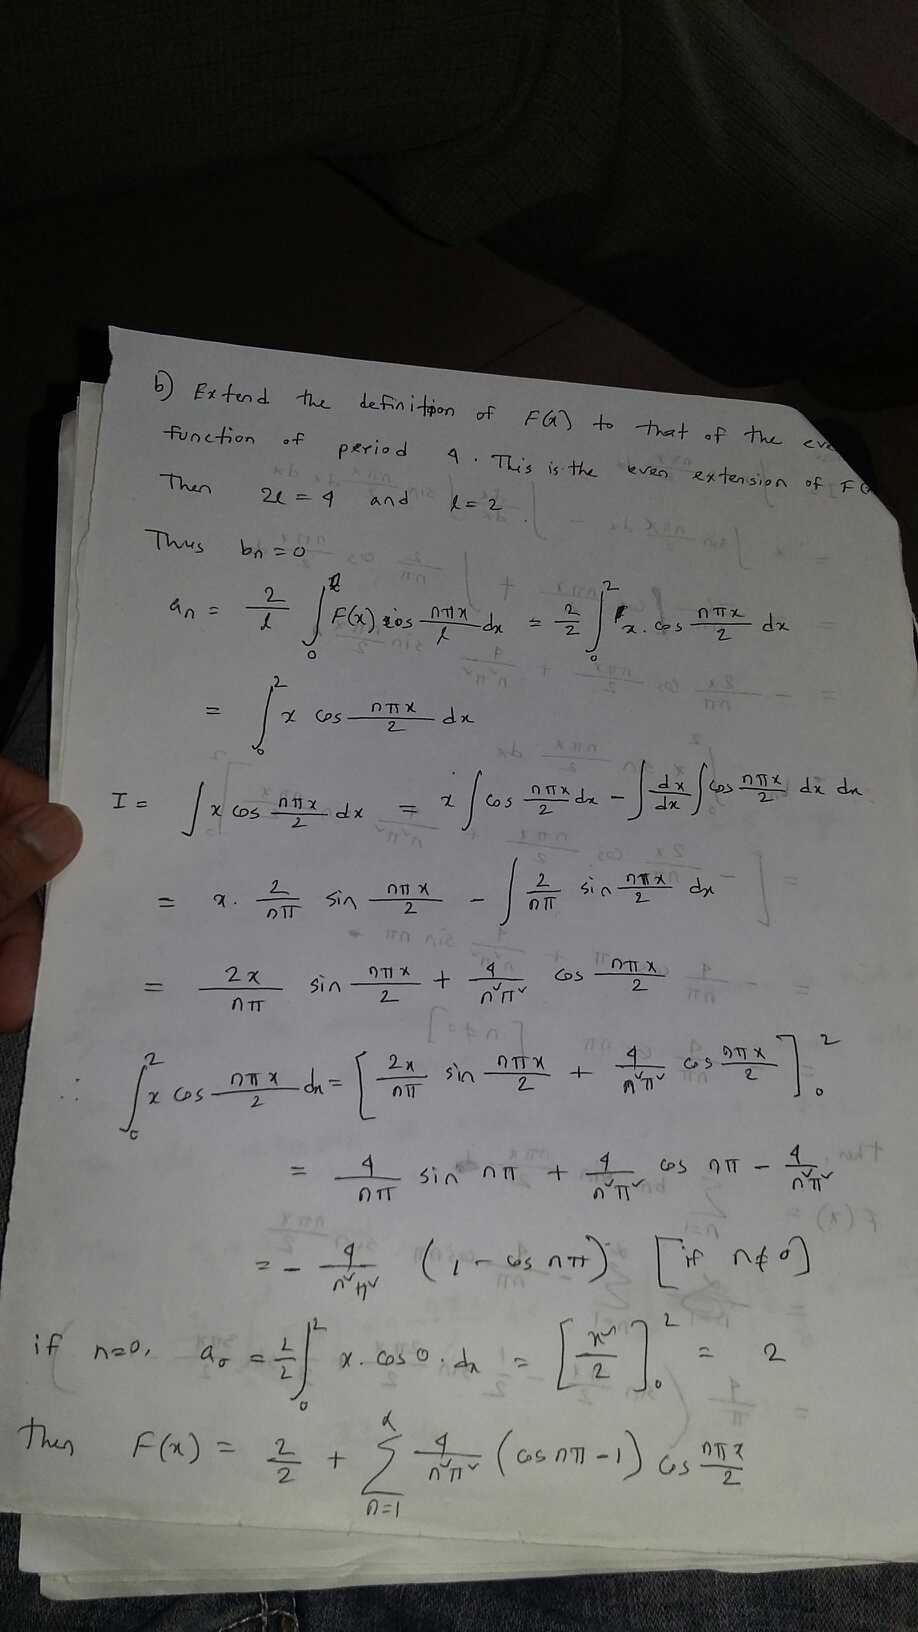 b) Extend the definition of F(x) to that of the eve
function of period 4. This is the even extension of F(x
Then 2l = 4 and l = 2.
Thus bn = 0
an = 2/l ∫₀ˡ F(x) cos nπx/l dx = 2/2 ∫₀² x. cos nπx/2 dx
= ∫₀² x cos nπx/2 dx
I = ∫ x cos nπx/2 dx = x ∫ cos nπx/2 dx - ∫ dx/dx ∫ cos nπx/2 dx dx
= x. 2/nπ sin nπx/2 - ∫ 2/nπ sin nπx/2 dx
= 2x/nπ sin nπx/2 + 4/n²π² cos nπx/2
∴ ∫₀² x cos nπx/2 dx = [2x/nπ sin nπx/2 + 4/n²π² cos nπx/2]₀²
= 4/nπ sin nπ + 4/n²π² cos nπ - 4/n²π²
= - 4/n²π² (1 - cos nπ) [if n≠0]
if n=0, a₀ = 2/2 ∫₀² x. cos 0. dx = [x²/2]₀² = 2
then F(x) = 2/2 + ∑ₙ₌₁^α 4/n²π² (cos nπ - 1) cos nπx/2